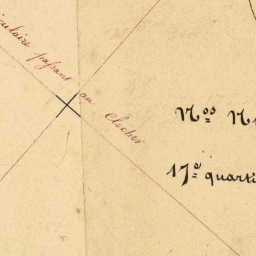 culaire passant au Clocher
Nos N
17º quarti